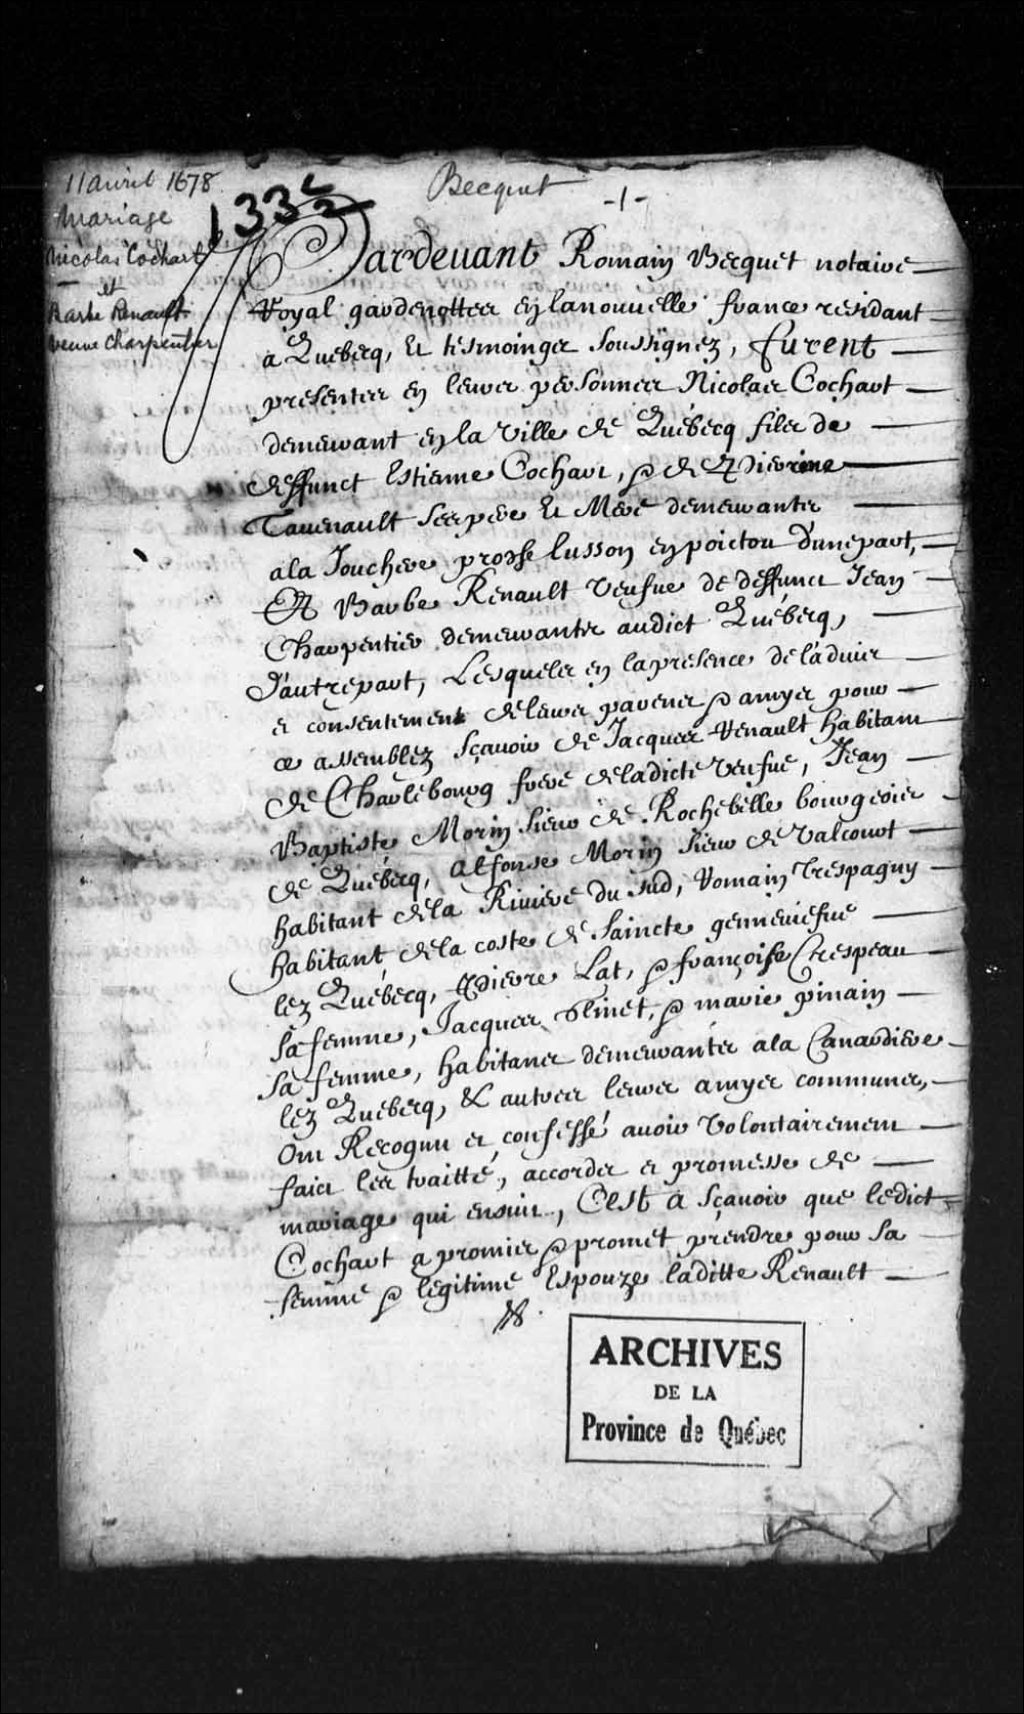 11 avril 1678
Becquet
-1-
Mariage
1332
Nicolas Cochart
et
Barbe Renault
veuve Charpentier
Pardevant Romain Becquet notaire
Royal gardenottes en la nouvelle france residant
a Quebecq, et tesmoings soussignez, furent
presentes en leurs personnes Nicolas Cochart
demeurant en la ville de Quebecq fils de
deffunct Estienne Cochart, & de Pierrine
Tavenault ses pere et Mere demeurants
a la Jouchere proche lusson en poictou d'une part,
Et Barbe Renault veufue de deffunct Jean
Charpentier demeurante audict Quebecq,
d'autre part, Lesquels en la presence de l'aduis
et consentement de leurs parens & amys pour
ce assemblez sçavoir de Jacques Renault habitant
de Charlebourg frere de ladicte veufue, Jean
Baptiste Morin sieur de Rochebelle bourgeois
de Quebecq, Alfonse Morin sieur de valcourt
habitant de la Riviere du sud, Romain Trespagny
habitant de la coste de saincte genneuiefue
lez Quebecq, Pierre Lat, & françoise Crespeau
sa femme, Jacques Glinet, & marie pinain
sa femme, habitans demeurants a la Canardiere
lez Quebecq, & autres leurs amys communs,
Ont Recognu et confessé avoir volontairement
faict les traitté, accords et promesse de
mariage qui ensuit, C'est a sçavoir que ledict
Cochart a promis & promet prendre pour sa
femme & legitime Espouze laditte Renault
ARCHIVES
DE LA
Province de Québec